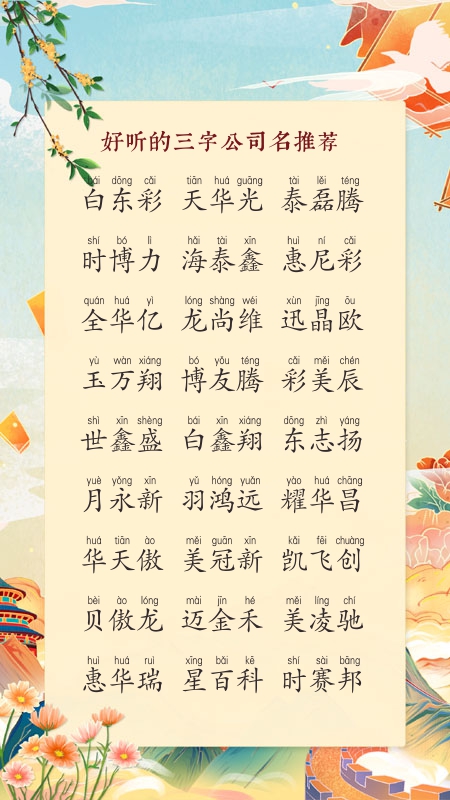 好听的三字公司名推荐
bái dōng cǎi tiān huá guāng tài lěi téng
白东彩 天华光 泰磊腾
shí bó lì hǎi tài xīn huì ní cǎi
时博力 海泰鑫 惠尼彩
quán huá yì lóng shàng wéi xùn jīng ōu
全华亿 龙尚维 迅晶欧
yù wàn xiáng bó yǒu téng cǎi měi chén
玉万翔 博友腾 彩美辰
shì xīn shèng bái xīn xiáng dōng zhì yáng
世鑫盛 白鑫翔 东志扬
yuè yǒng xīn yǔ hóng yuǎn yào huá chāng
月永新 羽鸿远 耀华昌
huá tiān ào měi guān xīn kǎi fēi chuàng
华天傲 美冠新 凯飞创
bèi ào lóng mài jīn hé měi líng chí
贝傲龙 迈金禾 美凌驰
huì huá ruì xīng bǎi kē shí sài bāng
惠华瑞 星百科 时赛邦